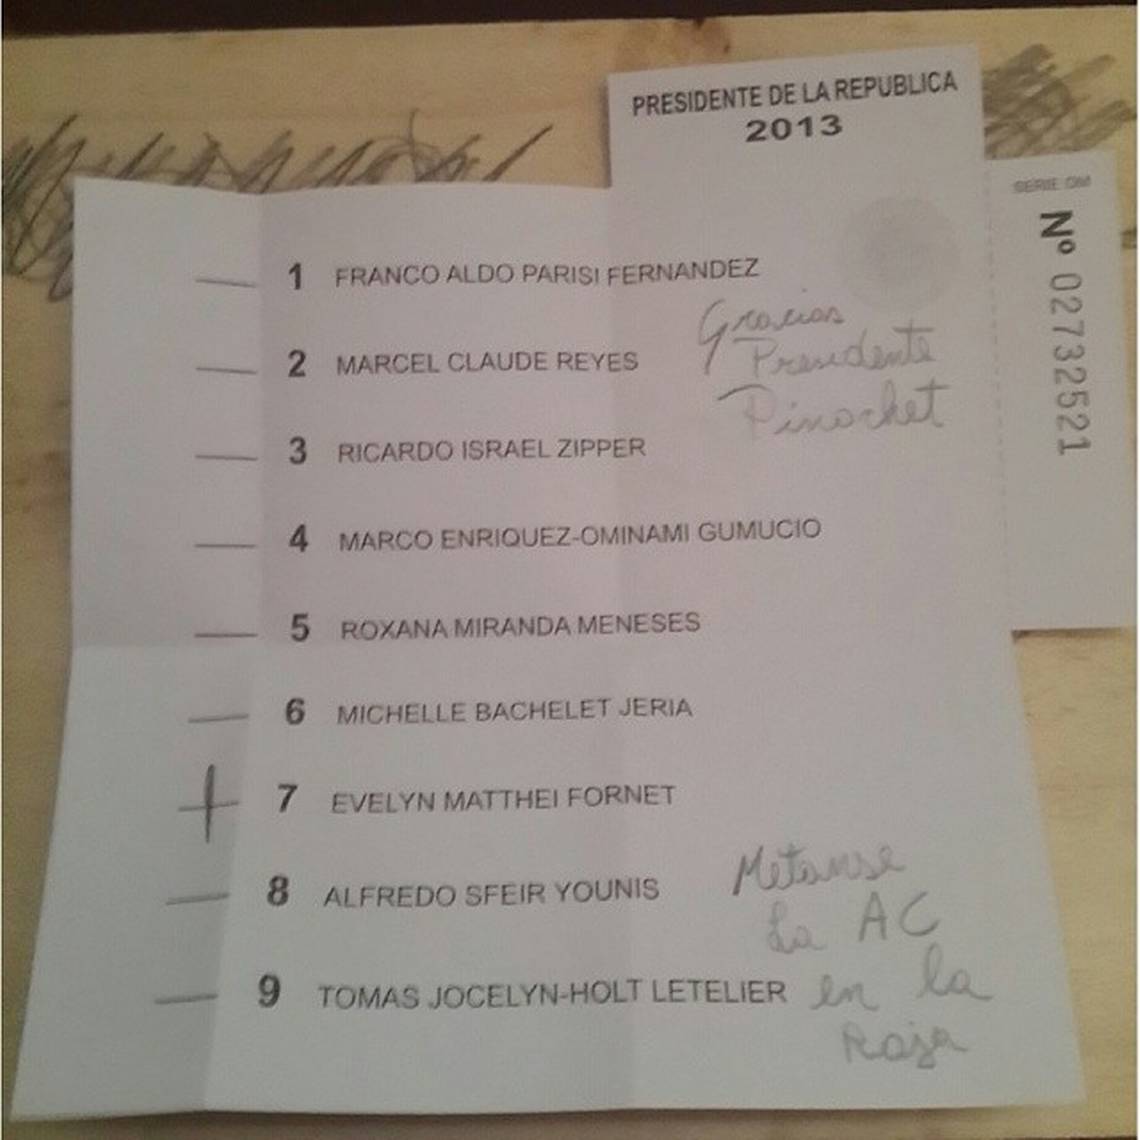 PRESIDENTE DE LA REPUBLICA
2013
SERIE OM
Nº 02732521
1 FRANCO ALDO PARISI FERNANDEZ
Gracias
Presidente
Pinochet
2 MARCEL CLAUDE REYES
3 RICARDO ISRAEL ZIPPER
4 MARCO ENRIQUEZ-OMINAMI GUMUCIO
5 ROXANA MIRANDA MENESES
6 MICHELLE BACHELET JERIA
7 EVELYN MATTHEI FORNET
8 ALFREDO SFEIR YOUNIS
9 TOMAS JOCELYN-HOLT LETELIER
Metanse
La AC
en la
Raja